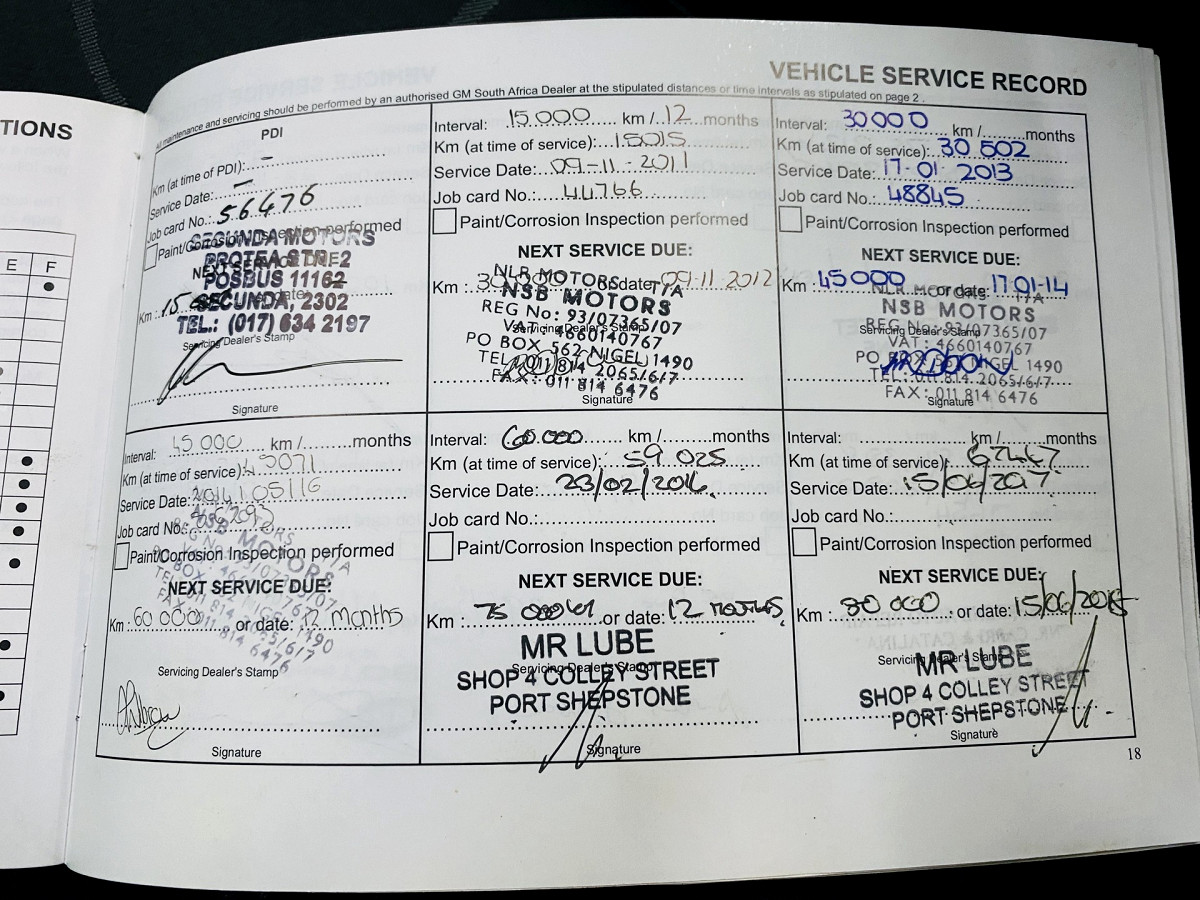 TIONS
E F
VEHICLE SERVICE RECORD
All maintenance and servicing should be performed by an authorised GM South Africa Dealer at the stipulated distances or time intervals as stipulated on page 2 .
PDI
Km (at time of PDI):. –
Service Date: –
Job card No.: 56476
Paint/Corrosion Inspection performed
NEXT SERVICE DUE:
Km : 15 or date:
SECUNDA MOTORS
PROTEA STR E2
POSBUS 11162
SECUNDA, 2302
TEL.: (017) 634 2197
Servicing Dealer's Stamp
Signature
Interval: 15.000 km / 12 months
Km (at time of service): 15015
Service Date: 09-11-2011
Job card No.: 44766
Paint/Corrosion Inspection performed
NEXT SERVICE DUE:
Km : 30 000 or date: 09-11-2012
NLR MOTORS T/A
NSB MOTORS
REG No: 93/07365/07
VAT: 4660140767
PO BOX 562 NIGEL 1490
TEL: 011 814 2065/6/7
FAX: 011 814 6476
Servicing Dealer's Stamp
Signature
Interval: 30000 km / months
Km (at time of service): 30 502
Service Date: 17-01 2013
Job card No.: 48845
Paint/Corrosion Inspection performed
NEXT SERVICE DUE:
Km : 45000 or date: 17-01-14
NLR MOTORS T/A
NSB MOTORS
REG No: 93/07365/07
VAT: 4660140767
PO BOX NIGEL 1490
TEL: 011 814 2065/6/7
FAX: 011 814 6476
Servicing Dealer's Stamp
Signature
Interval: 45 000 km / months
Km (at time of service): 45071
Service Date: 2014/05/16
Job card No.:
Paint/Corrosion Inspection performed
NEXT SERVICE DUE:
Km : 60 000 or date: 12 months
NSB MOTORS
Servicing Dealer's Stamp
Signature
Interval: 60.000 km / months
Km (at time of service): 59 025
Service Date: 23/02/2016
Job card No.:
Paint/Corrosion Inspection performed
NEXT SERVICE DUE:
Km : 75 000 or date: 12 MONTHS
MR LUBE
SHOP 4 COLLEY STREET
PORT SHEPSTONE
Servicing Dealer's Stamp
Signature
Interval: km / months
Km (at time of service): 67447
Service Date: 15/06/2017
Job card No.:
Paint/Corrosion Inspection performed
NEXT SERVICE DUE:
Km : 80 000 or date: 15/06/2018
MR LUBE
SHOP 4 COLLEY STREET
PORT SHEPSTONE
Servicing Dealer's Stamp
Signature
18